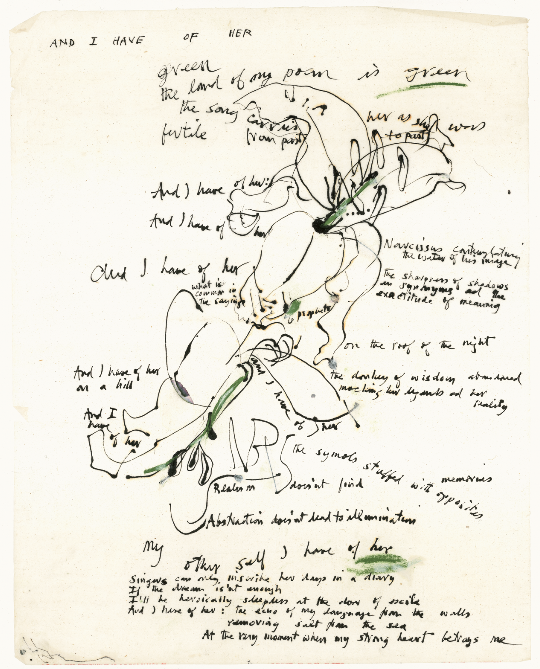 AND I HAVE OF HER
green
the land of my poem is green
the song carries her as soft words
fertile from past to past
And I have of her:
And I have of her
And I have of her
what is common in the sayings
a prophetic
Narcissus contemplating
the water of his image
the sharpness of shadows
in synonyms and the
exactitude of meaning
on the roof of the night
the donkey of wisdom abandoned
mocking her legends and her
reality
And I have of her
on a hill
and I have of her
And I
have
of her
the symbols stuffed with memories
opposites
Realism doesn't find
Abstraction doesn't lead to illumination
My
other self I have of her
Singers can only inscribe her days in a diary
If the dream isn't enough
I'll be heroically sleepless at the door of exile
And I have of her: the echo of my language from the walls
removing salt from the sea
At the very moment when my strong heart betrays me